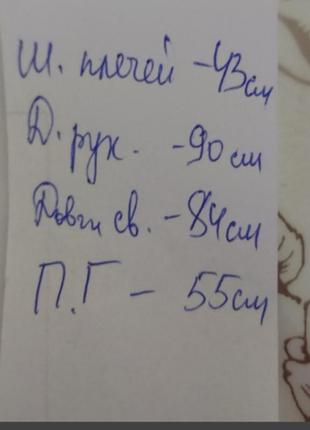 Ш. плечей - 43 см
Д. рук. - 90 см
Довги св. - 84 см
П.Г - 55 см